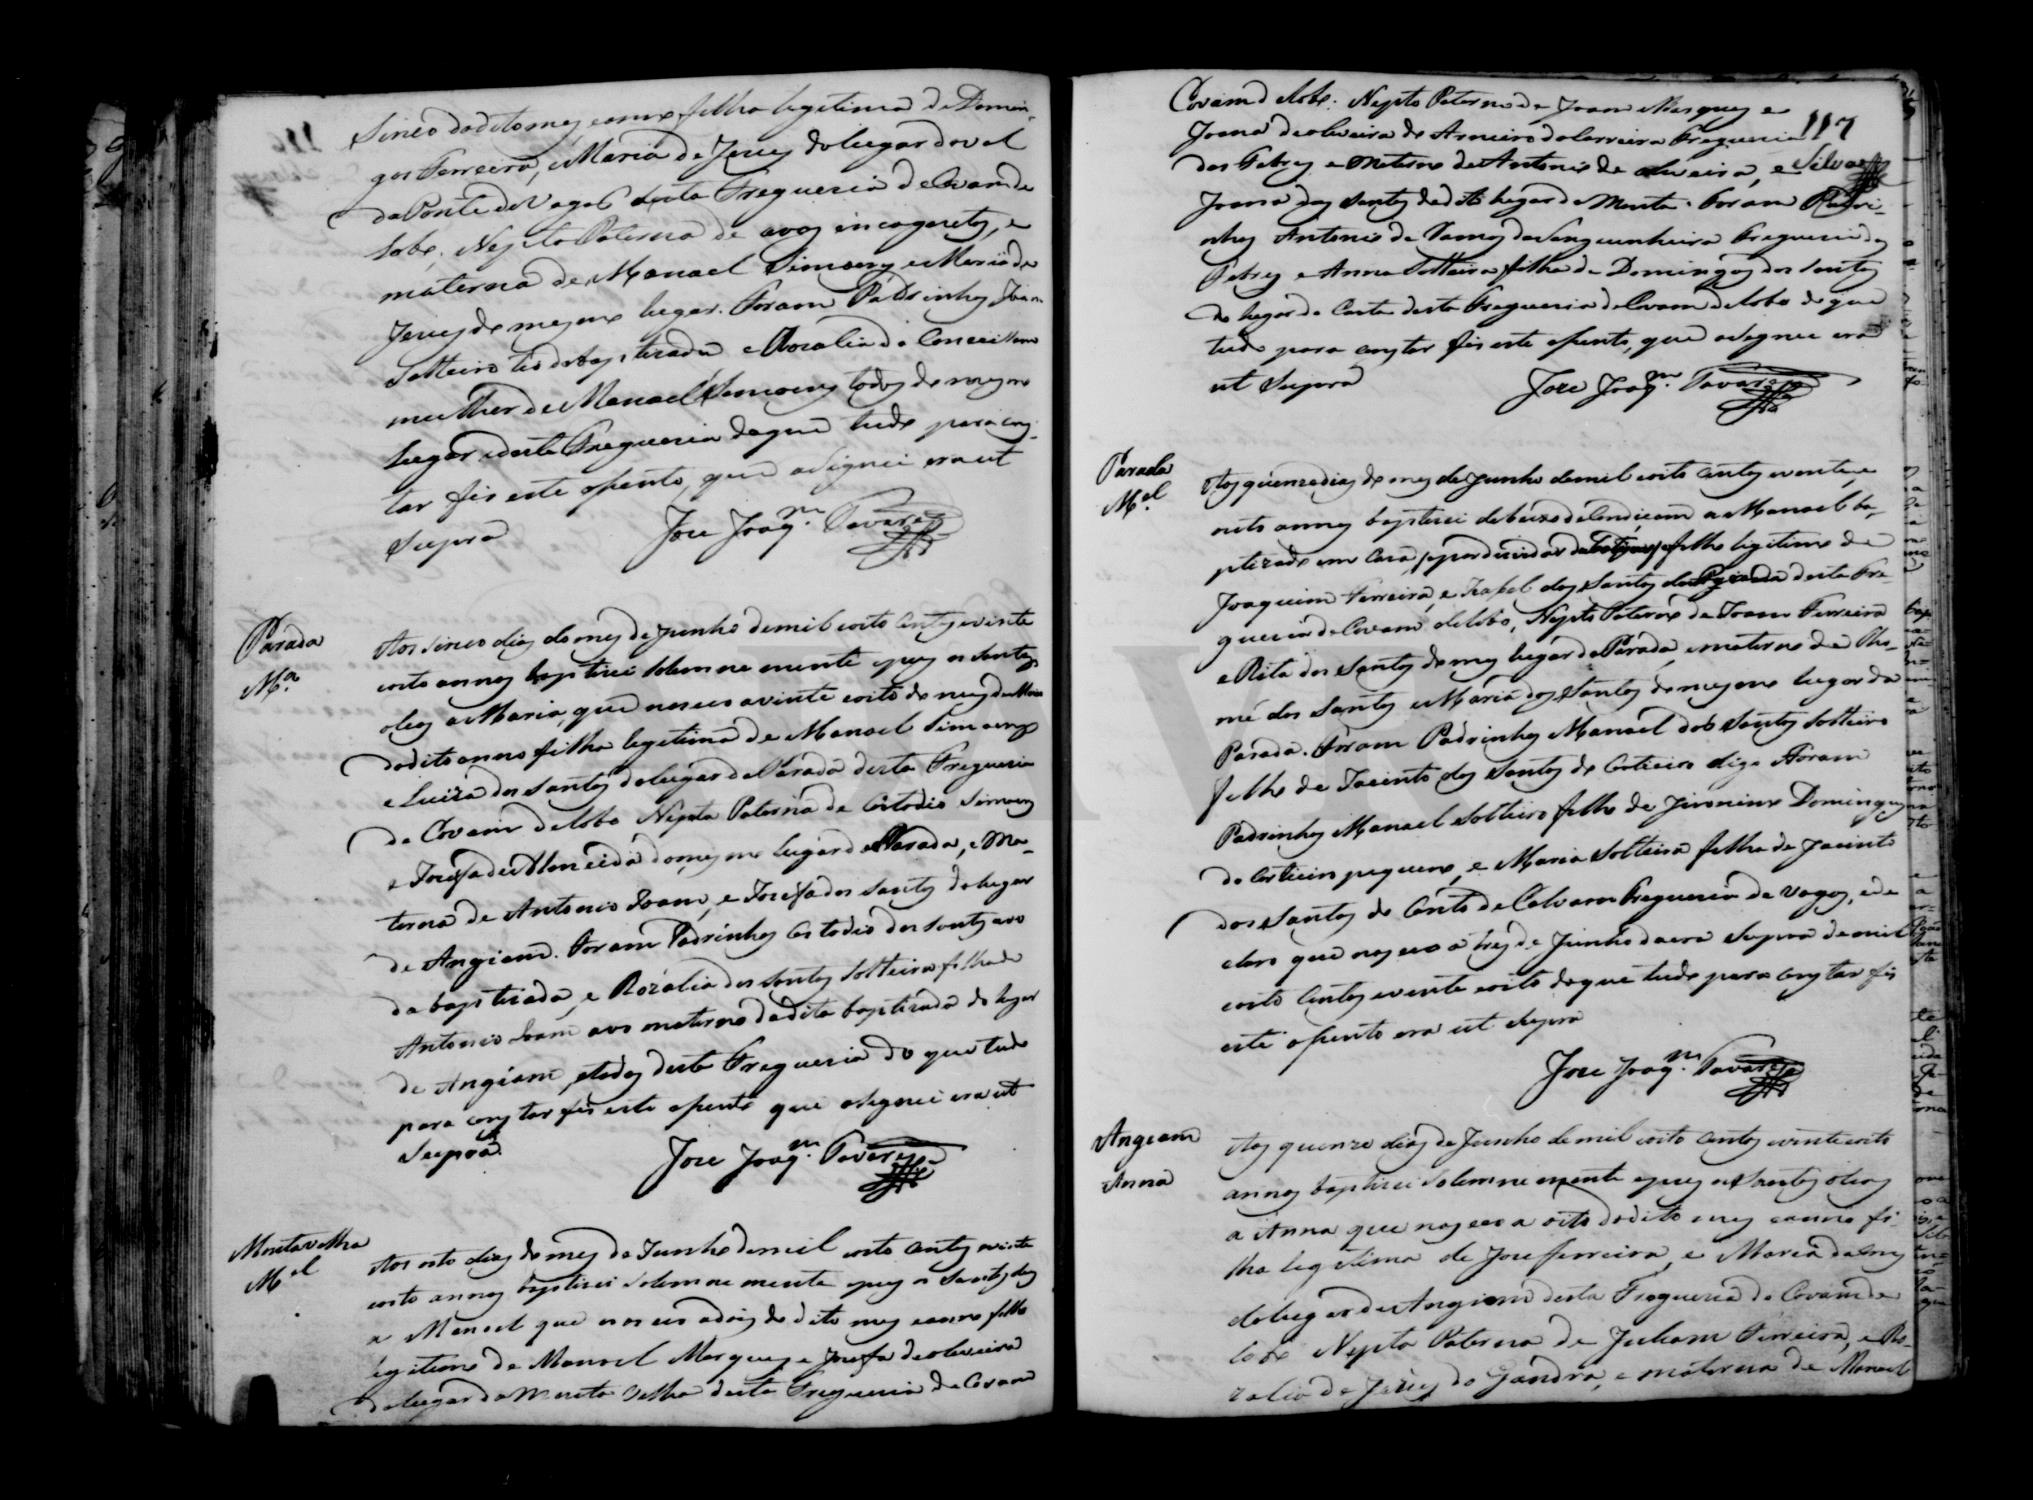 Sinco do dito mes e anno filha legitima de Domin-
gos Ferreira, e Maria de Jesus do lugar do val
da Ponte de Vagos desta Freguezia de Covam de
Lobo; Neta Paterna de avos incognitos, e
materna de Manoel Simoens e Maria de
Jesus do mesmo lugar. Foram Padrinhos Joam
Solteiro tio da baptizada e Rozalia da Conceissam
mulher de Manoel Simoens todos do mesmo
lugar desta Freguezia de que tudo para cons-
tar fis este asento, que asignei era ut
Supra
Joze Joaqm. Tavares
Parada
Ma.
Aos sinco dias do mes de Junho de mil oito centos e vinte
oito annos baptizei solemnemente e pus os santos
oleos a Maria, que nasceo a vinte e oito do mes de Maio
do dito anno filha legitima de Manoel Simoens
e Luiza dos Santos do lugar da Parada desta Freguezia
de Covam de Lobo Nepta Paterna de Costodio Simoens
e Josefa de Almeida do mesmo lugar da Parada, e Ma-
terna de Antonio Joam, e Josefa dos Santos do lugar
de Angiam. Foram Padrinhos Costodio dos Santos avo
da baptizada, e Rozalia dos Santos Solteira filha de
Antonio Joam avo materno da dita baptizada do lugar
de Angiam, e todos desta Freguezia do que tudo
para constar fis este asento que asignei era ut
Supra.
Joze Joaqm. Tavares
Montavelha
Mel
Aos oito dias do mes de Junho de mil oito centos e vinte
oito annos baptizei solemnemente e pus os Santos oleos
a Manoel que nasceo a dois do dito mes e anno filho
legitimo de Manoel Marques e Josefa de oliveira
do lugar da Monta velha desta Freguezia de Covam
117
Covam de Lobo. Nepto Paterno de Joam Marques e
Joana de oliveira de Arneiro da Carreira Freguezia
das Febres e Materno de Antonio de oliveira, e Silva
Joana dos Santos do dito lugar da Monta. Foram Padri-
nhos Antonio de Ramos da Sanguinheira Freguezia das
Febres e Anna Solteira filha de Domingos dos Santos
do lugar da Costa desta Freguezia de Covam de Lobo de que
tudo para constar fis este asento, que asignei era
ut Supra
Joze Joaqm. Tavares
Parada
Mel
Aos quinze dias do mes de Junho de mil oito centos e vinte, e
oito annos baptizei debaixo de Condiçam a Manoel ba-
ptizado em Caza, filho legitimo de
Joaquim Ferreira, e Izabel dos Santos da Parada desta Fre-
guezia de Covam de Lobo, Nepto Paterno de Joam Ferreira
e Rita dos Santos do mes lugar da Parada, e materno de Tho-
mé dos Santos e Maria dos Santos do mesmo lugar da
Parada. Foram Padrinhos Manoel dos Santos Solteiro
filho de Jacinto dos Santos de Corticeiro digo Foram
Padrinhos Manoel Solteiro filho de Jironimo Domingues
do Corticeiro pequeno, e Maria Solteira filha de Jacinto
dos Santos do Canto de Calvam Freguezia de Vagos, e de-
claro que nasceo a tres de Junho da era Supra de mil
oito Centos e vinte oito de que tudo para constar fis
este asento era ut Supra
Joze Joaqm. Tavares
Angeam
Anna
Aos quinze dias de Junho de mil oito centos e vinte oito
annos baptizei solemnemente e pus os Santos oleos
a Anna que nasceo a oito do dito mes e anno fi-
lha legitima de Joze Ferreira, e Maria da Cruz
do lugar de Angiam desta Freguezia de Covam de
Lobo Nepta Paterna de Juliam Ferreira, e Ro-
zalia de Jesus da Gandra, e materna de Manoel